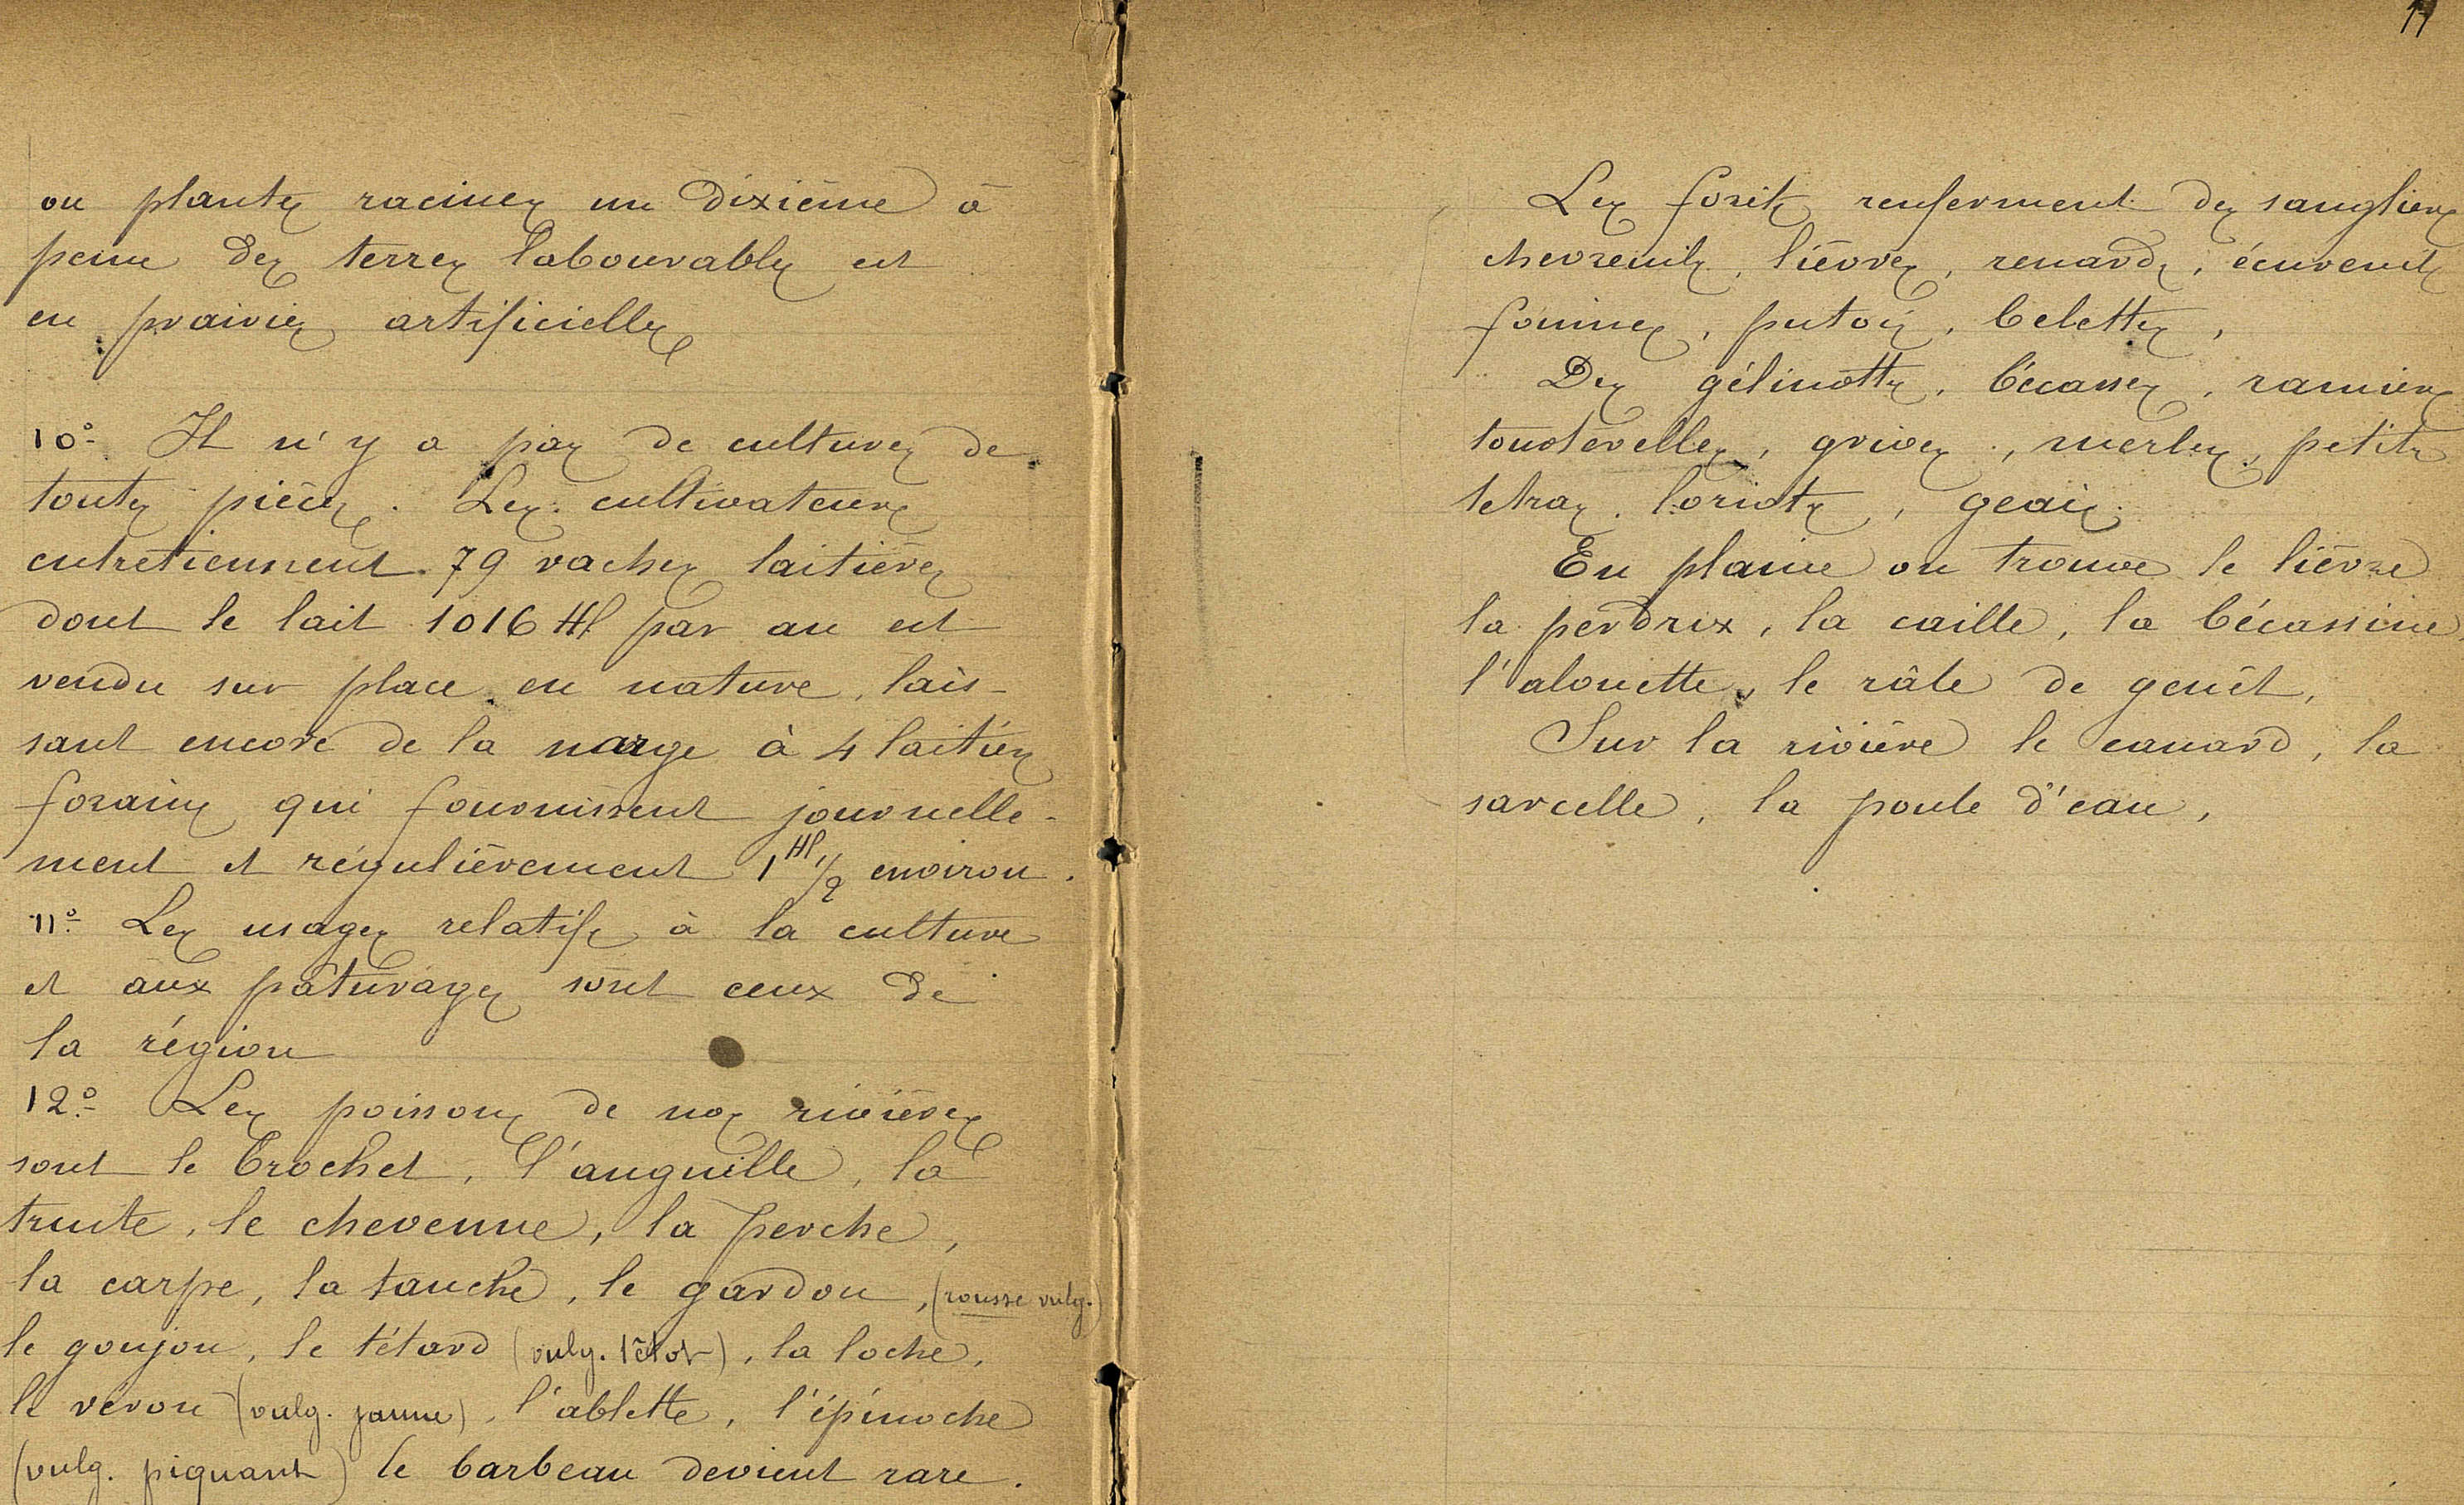 ou plantes racines un dixième à
peine des terres labourables est
en prairies artificielles
10° Il n'y a pas de cultures de
toutes pièces. Les cultivateurs
entretiennent 79 vaches laitières
dont le lait 1016 Hl par an est
vendu sur place en nature, lais-
sant encore de la marge à 4 laitiers
forains qui fournissent journelle-
ment et régulièrement 1 Hl 1/2 environ.
11° Les usages relatifs à la culture
et aux pâturages sont ceux de
la région
12° Les poissons de nos rivières
sont le brochet, l'anguille, la
truite, le chevenne, la perche,
la carpe, la tanche, le gardon, (rousse vulg.)
le goujon, le têtard (vulg. têtot), la loche,
le véron (vulg. jaune), l'ablette, l'épinoche
(vulg. piquant) le barbeau devient rare.
11
Les forêts renferment des sangliers
chevreuils, lièvres, renards, écureuils
fouines, putois, belettes,
Des gélinottes, bécasses, ramiers
tourterelles, grives, merles, petits
tetras, loriots, geais.
En plaine on trouve le lièvre
la perdrix, la caille, la bécassine
l'alouette, le râle de genêt,
Sur la rivière le canard, la
sarcelle, la poule d'eau,